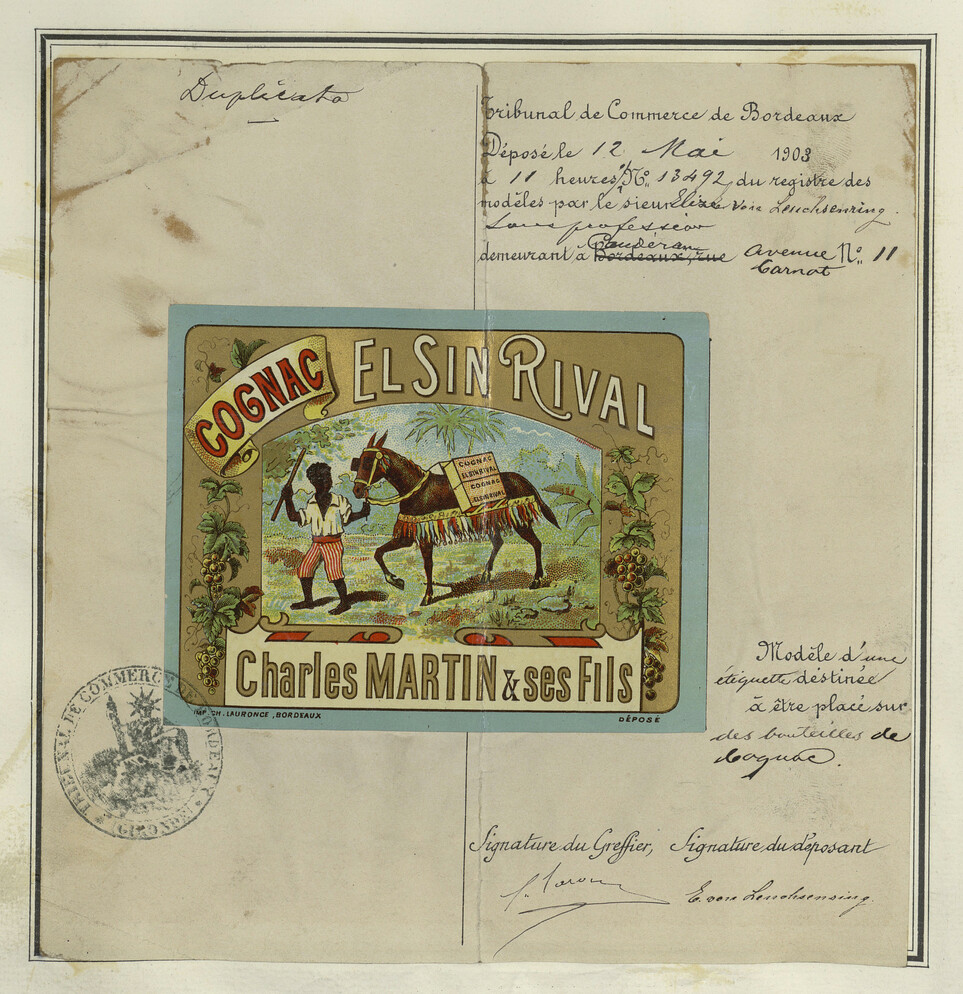 Duplicata
Tribunal de Commerce de Bordeaux
Déposé le 12 Mai 1903
à 11 heures, N.º 13492 du registre des
modèles par le sieur Elizé von Leuchsenring.
sans profession
Caudéran
demeurant à Bordeaux, rue avenue N.º 11
Carnot
COGNAC
EL SIN RIVAL
COGNAC
EL SIN RIVAL
COGNAC
EL SIN RIVAL
Charles MARTIN & ses Fils
IMP. CH. LAURONCE, BORDEAUX
DÉPOSÉ
TRIBUNAL DE COMMERCE DE BORDEAUX
(GIRONDE)
Modèle d'une
étiquette destinée
à être placé sur
des bouteilles de
Cognac.
Signature du Greffier, Signature du déposant
E. von Leuchsenring.